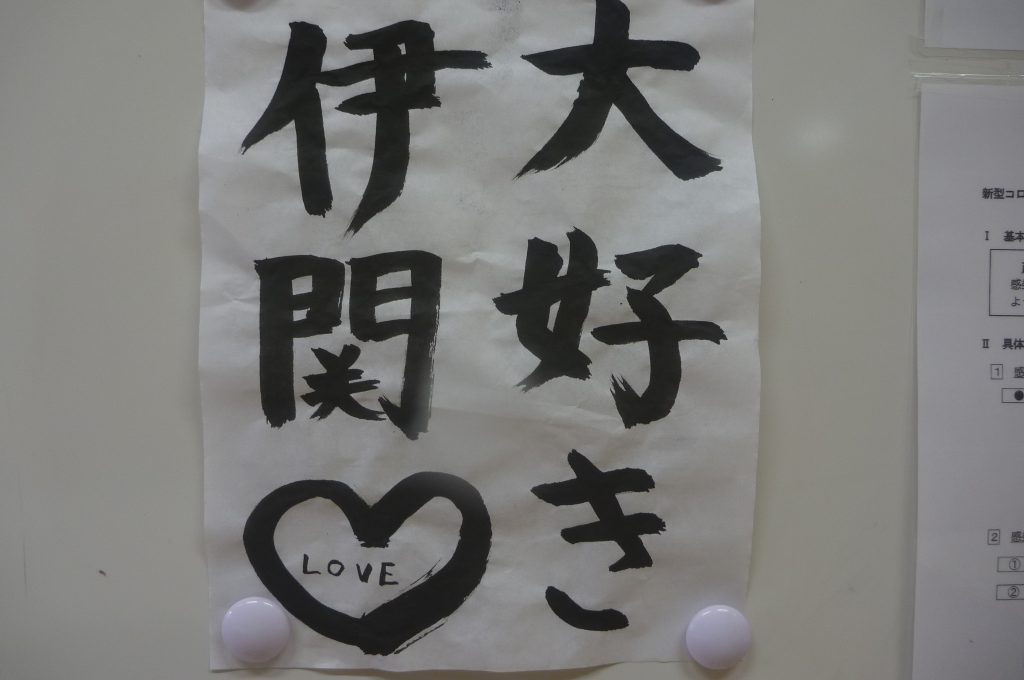 大好き
伊関
LOVE
新型コロ
Ⅰ 基本
感染
よ
Ⅱ 具体
1 感
●
2 感染
①
②